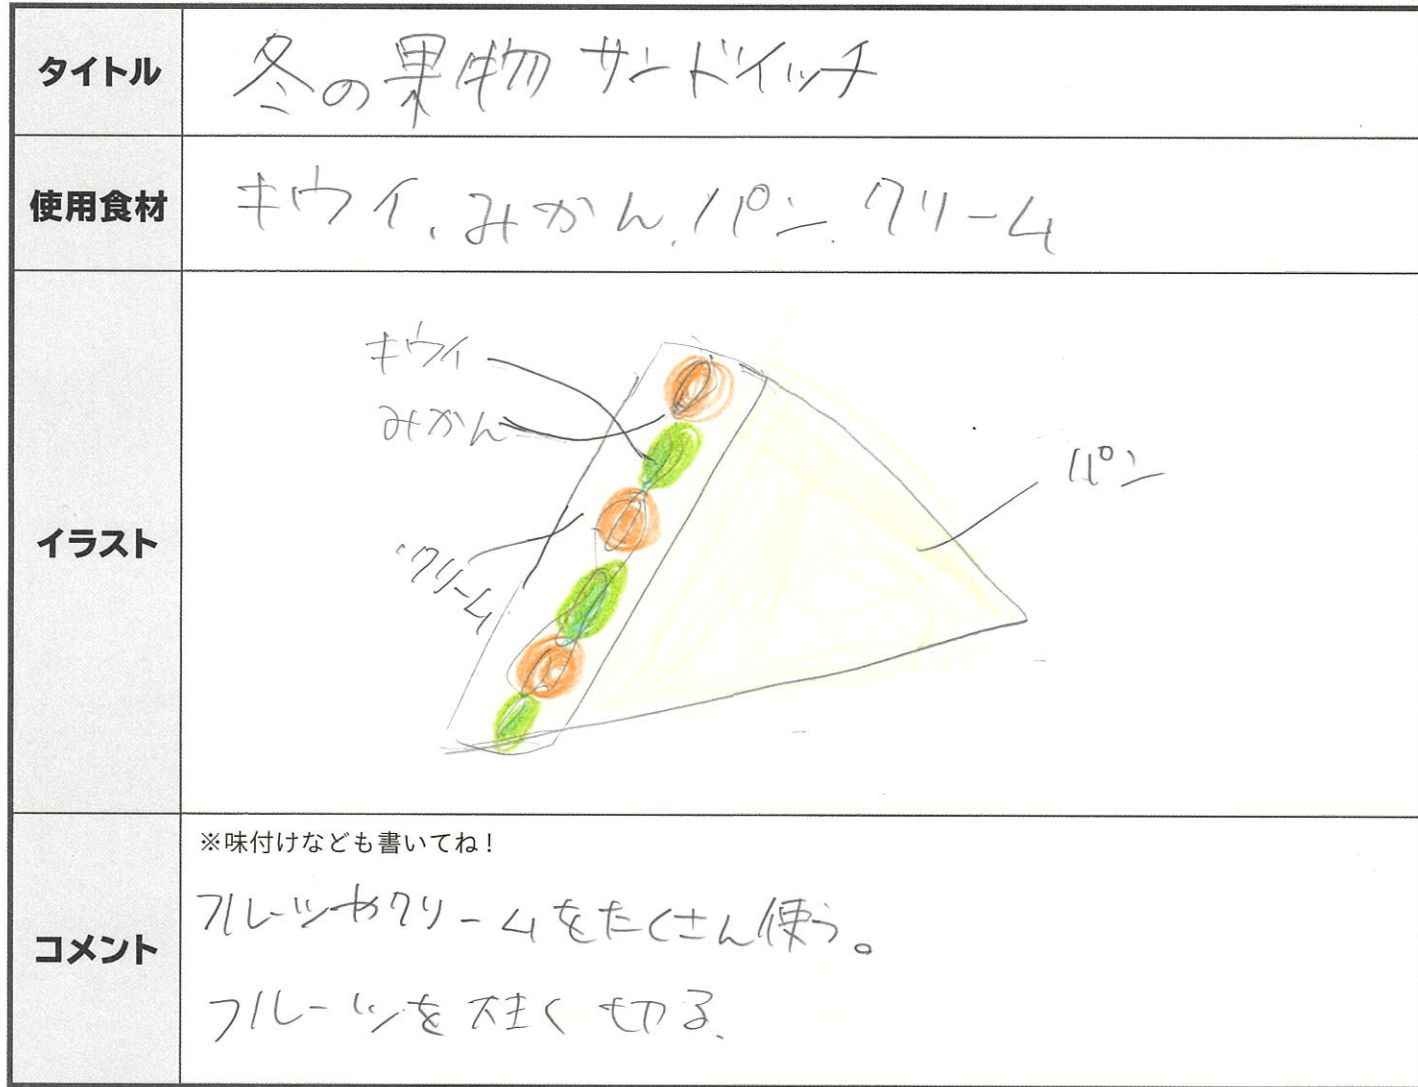 タイトル
冬の果物サンドイッチ
使用食材
キウイ、みかん、パン、クリーム
イラスト
キウイ
みかん
クリーム
パン
コメント
※味付けなども書いてね!
フルーツやクリームをたくさん使う。
フルーツを大きく切る。